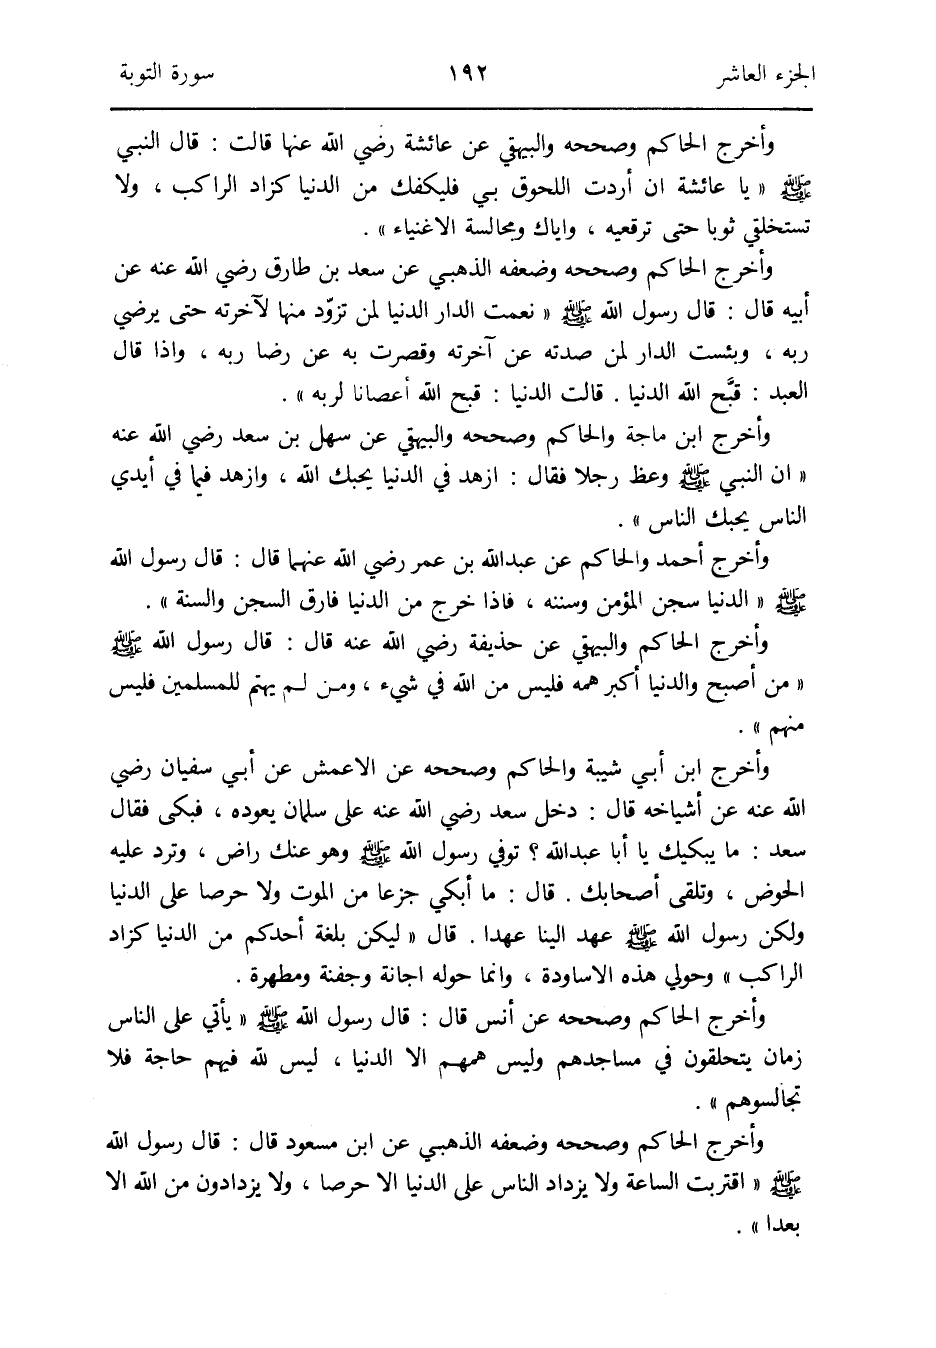 الجزء العاشر ١٩٢ سورة التوبة
وأخرج الحاكم وصححه والبيهقي عن عائشة رضي الله عنها قالت : قال النبي
ﷺ « يا عائشة ان أردت اللحوق بي فليكفك من الدنيا كزاد الراكب ، ولا
تستخلقي ثوبا حتى ترقعيه ، واياك ومجالسة الاغنياء » .
وأخرج الحاكم وصححه وضعفه الذهبي عن سعد بن طارق رضي الله عنه عن
أبيه قال : قال رسول الله ﷺ « نعمت الدار الدنيا لمن تزوّد منها لآخرته حتى يرضي
ربه ، وبئست الدار لمن صدته عن آخرته وقصرت به عن رضا ربه ، واذا قال
العبد : قبَّح الله الدنيا . قالت الدنيا : قبح الله أعصانا لربه » .
وأخرج ابن ماجة والحاكم وصححه والبيهقي عن سهل بن سعد رضي الله عنه
« ان النبي ﷺ وعظ رجلا فقال : ازهد في الدنيا يحبك الله ، وازهد فيما في أيدي
الناس يحبك الناس » .
وأخرج أحمد والحاكم عن عبدالله بن عمر رضي الله عنهما قال : قال رسول الله
ﷺ « الدنيا سجن المؤمن وسننه ، فاذا خرج من الدنيا فارق السجن والسنة » .
وأخرج الحاكم والبيهقي عن حذيفة رضي الله عنه قال : قال رسول الله ﷺ
« من أصبح والدنيا أكبر همه فليس من الله في شيء ، ومن لم يهتم للمسلمين فليس
منهم » .
وأخرج ابن أبي شيبة والحاكم وصححه عن الاعمش عن أبي سفيان رضي
الله عنه عن أشياخه قال : دخل سعد رضي الله عنه على سلمان يعوده ، فبكى فقال
سعد : ما يبكيك يا أبا عبدالله ؟ توفي رسول الله ﷺ وهو عنك راض ، وترد عليه
الحوض ، وتلقى أصحابك . قال : ما أبكي جزعا من الموت ولا حرصا على الدنيا
ولكن رسول الله ﷺ عهد الينا عهدا . قال « ليكن بلغة أحدكم من الدنيا كزاد
الراكب » وحولي هذه الاساودة ، وانما حوله اجانة وجفنة ومطهرة .
وأخرج الحاكم وصححه عن أنس قال : قال رسول الله ﷺ « يأتي على الناس
زمان يتحلقون في مساجدهم وليس همهم الا الدنيا ، ليس لله فيهم حاجة فلا
تجالسوهم » .
وأخرج الحاكم وصححه وضعفه الذهبي عن ابن مسعود قال : قال رسول الله
ﷺ « اقتربت الساعة ولا يزداد الناس على الدنيا الا حرصا ، ولا يزدادون من الله الا
بعدا » .